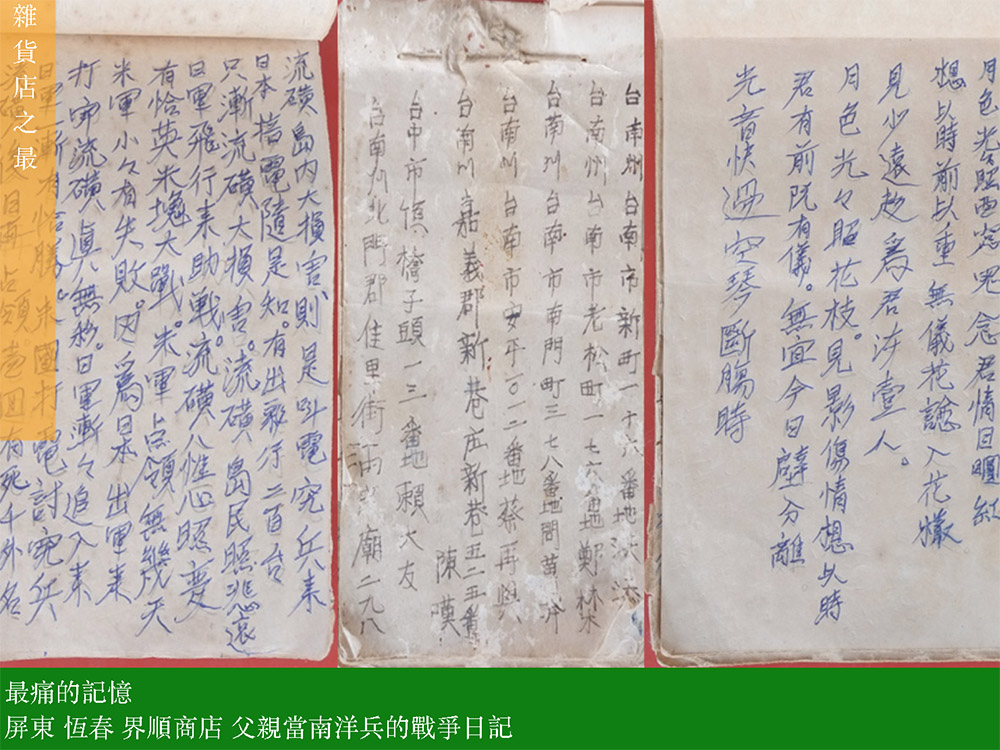 雜貨店之最
月色光 照西窓 念君情目眶紅
想以時前以重 無儀花 入花欉
見少遠赴為君 壹人。
月色光々照花枝。見影傷情想以時
君有前 有儀。無宜今日 分離
光音快過空琴斷腸時
台南州台南市新町一十六番地洪
台南州台南市老松町一七六番地鄭
台南州台南市南門町三七八番地
台南州台南市安平一〇二二番地蔡再
台南州嘉義郡新巷庄新巷五二五番
陳嘆
台中市 橋子頭一三番地賴大友
台南州北門郡佳里街 廟二九八
流磺島内大損害則是叫電 兵来
日本搭電隨是知。有出飛行二百台
只漸流磺大損害。流磺島民照悲哀
日軍飛行来助戰。流磺人惟心照变
有恰英米塊大戰。米軍占領無幾天
米軍小々有失敗。因為日本出軍来
打乎流磺真無 。日軍漸々追入来
打電討 兵
有死千外名
最痛的記憶
屏東 恆春 界順商店 父親當南洋兵的戰爭日記